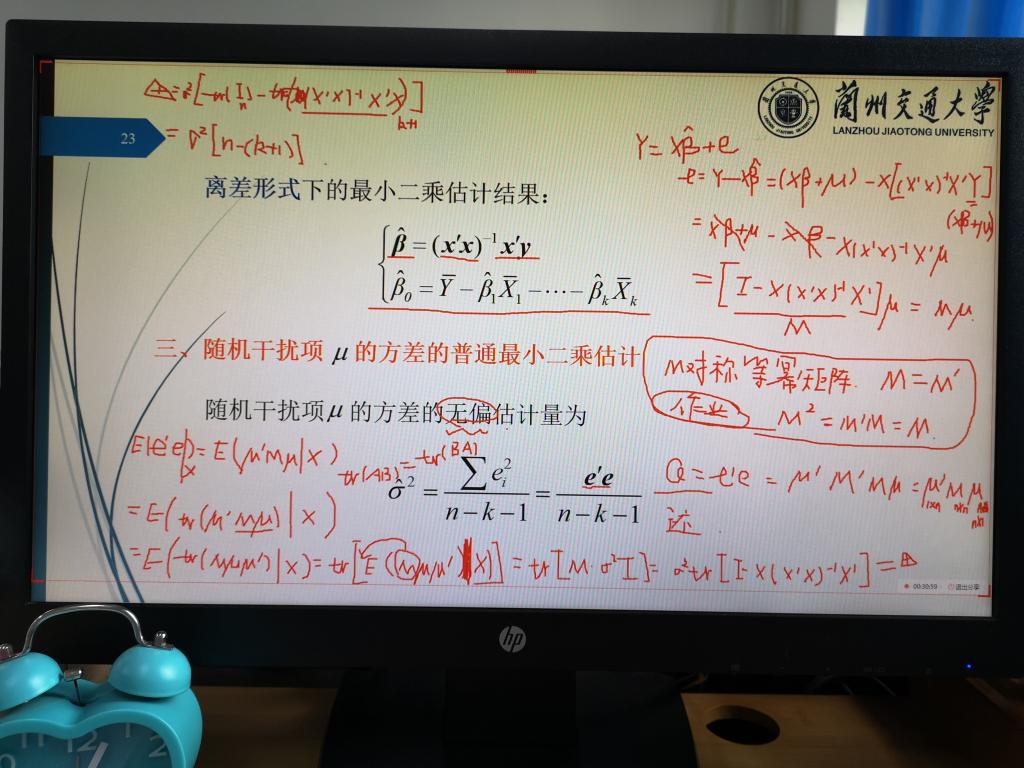 △=σ²[tr(I)ₙ - tr((X'X)⁻¹X'X)]
k+1
= σ²[n-(k+1)]
23
蘭州交通大学
LANZHOU JIAOTONG UNIVERSITY
Y = Xβ̂ + e
e = Y - Xβ̂ = (Xβ+μ) - X[(X'X)⁻¹X'Y]
(Xβ+μ)
= Xβ+μ - Xβ - X(X'X)⁻¹X'μ
= [I - X(X'X)⁻¹X']μ = Mμ.
M
离差形式下的最小二乘估计结果：
β̂ = (x'x)⁻¹x'y
β̂₀ = Ȳ - β̂₁X̄₁ - ⋯ - β̂ₖX̄ₖ
三、随机干扰项 μ 的方差的普通最小二乘估计
M对称等幂矩阵. M = M'
作业 M² = M'M = M.
随机干扰项μ 的方差的无偏估计量为
E(e'e|X) = E(μ'Mμ|X)
tr(AB) = tr(BA)
σ̂² = ∑eᵢ² / (n-k-1) = e'e / (n-k-1)
Q = e'e = μ'M'Mμ = μ'Mμ
1×n n×n n×1
迹.
= E(tr(μ'Mμ)|X)
= E(tr(Mμμ')|X) = tr[E(Mμμ'|X)] = tr[M·σ²I] = σ²tr[I - X(X'X)⁻¹X'] = △
00:30:59 退出分享
hp
12